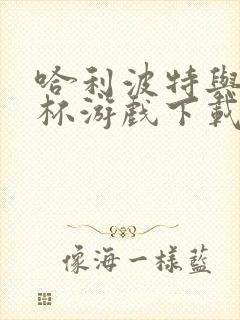 哈利波特與
杯游戲下載
像海一樣藍